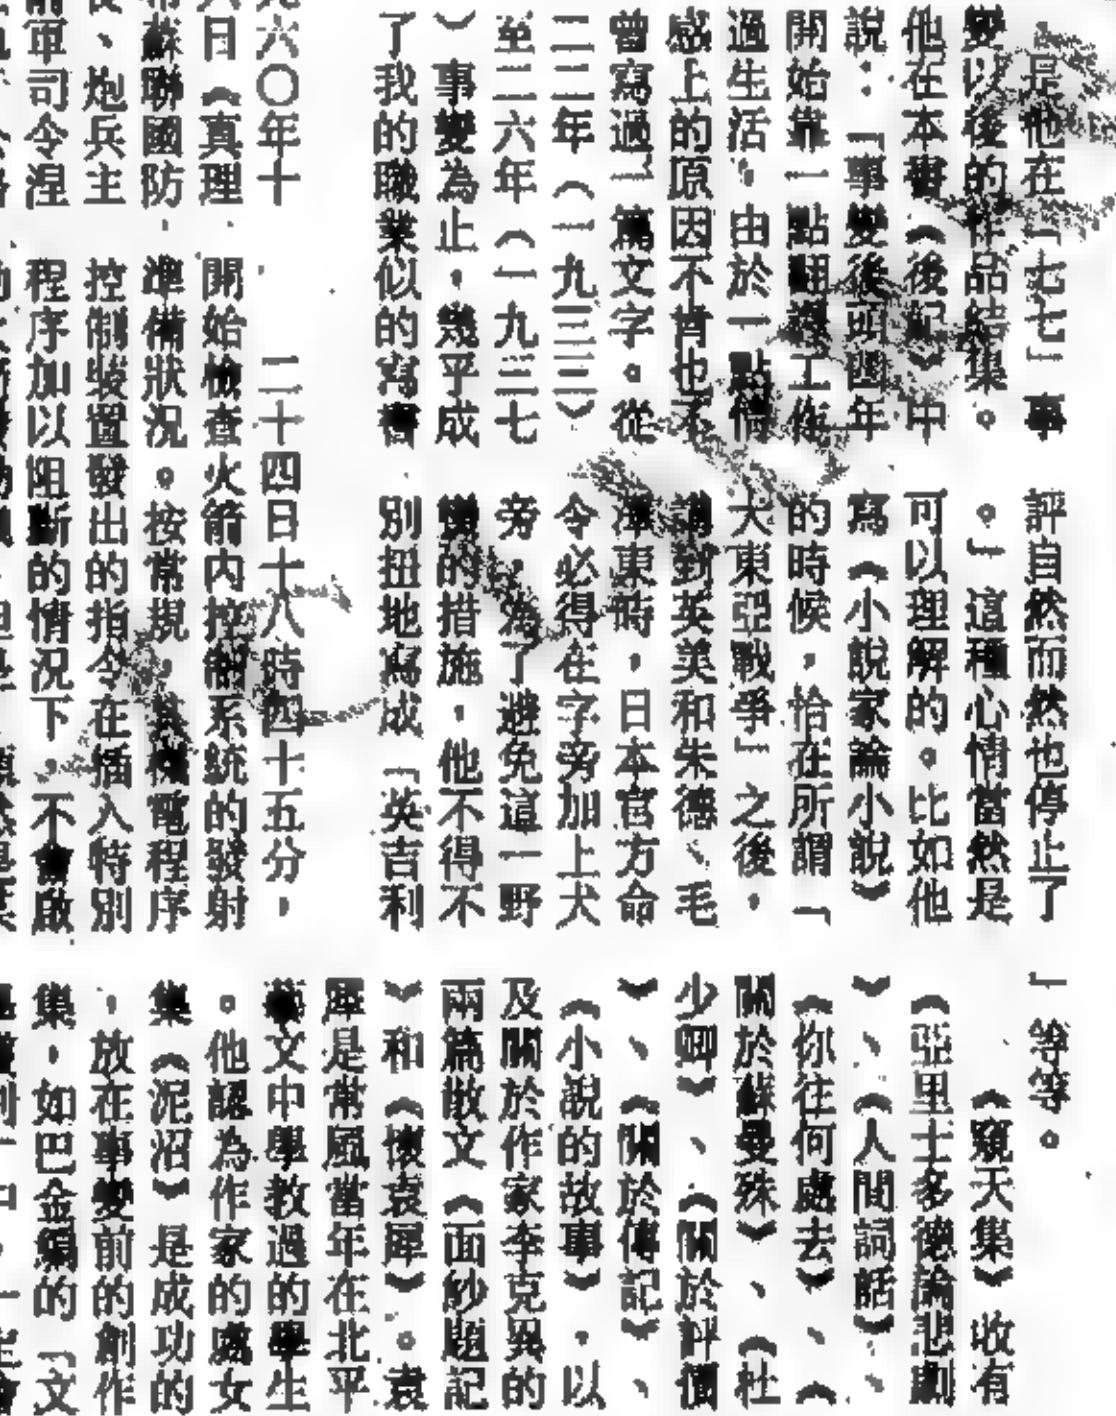 是他在「七七」事
變以後的作品結集。
他在本書《後記》中
說：「事變後頭四年
開始靠一點翻譯工作
過生活，由於一點情
感上的原因不肯也不
曾寫過一篇文字。從
二二年（一九三三）
至二六年（一九三七
）事變為止，幾乎成
了我的職業似的寫書
評自然而然也停止了
。」這種心情當然是
可以理解的。比如他
寫《小說家論小說》
的時候，恰在所謂「
大東亞戰爭」之後，
講到英美和朱德、毛
澤東時，日本官方命
令必得在字旁加上犬
旁，為了避免這一野
蠻的措施，他不得不
別扭地寫成「英吉利
」等等。
《窺天集》收有
《亞里士多德論悲劇
》、《人間詞話》、
《你往何處去》、《
關於蘇曼殊》、《杜
少卿》、《關於評價
》、《關於傳記》、
《小說的故事》，以
及關於作家李克異的
兩篇散文《面紗題記
》和《懷袁犀》。袁
犀是常風當年在北平
藝文中學教過的學生
。他認為作家的處女
集《泥沼》是成功的
，放在事變前的創作
集，如巴金編的「文
六〇年十
日《真理
蘇聯國防
、炮兵主
軍司令涅
二十四日十八時四十五分，
開始檢查火箭內控制系統的發射
準備狀況。按常規，其機電程序
控制裝置發出的指令在插入特別
程序加以阻斷的情況下，不會啟